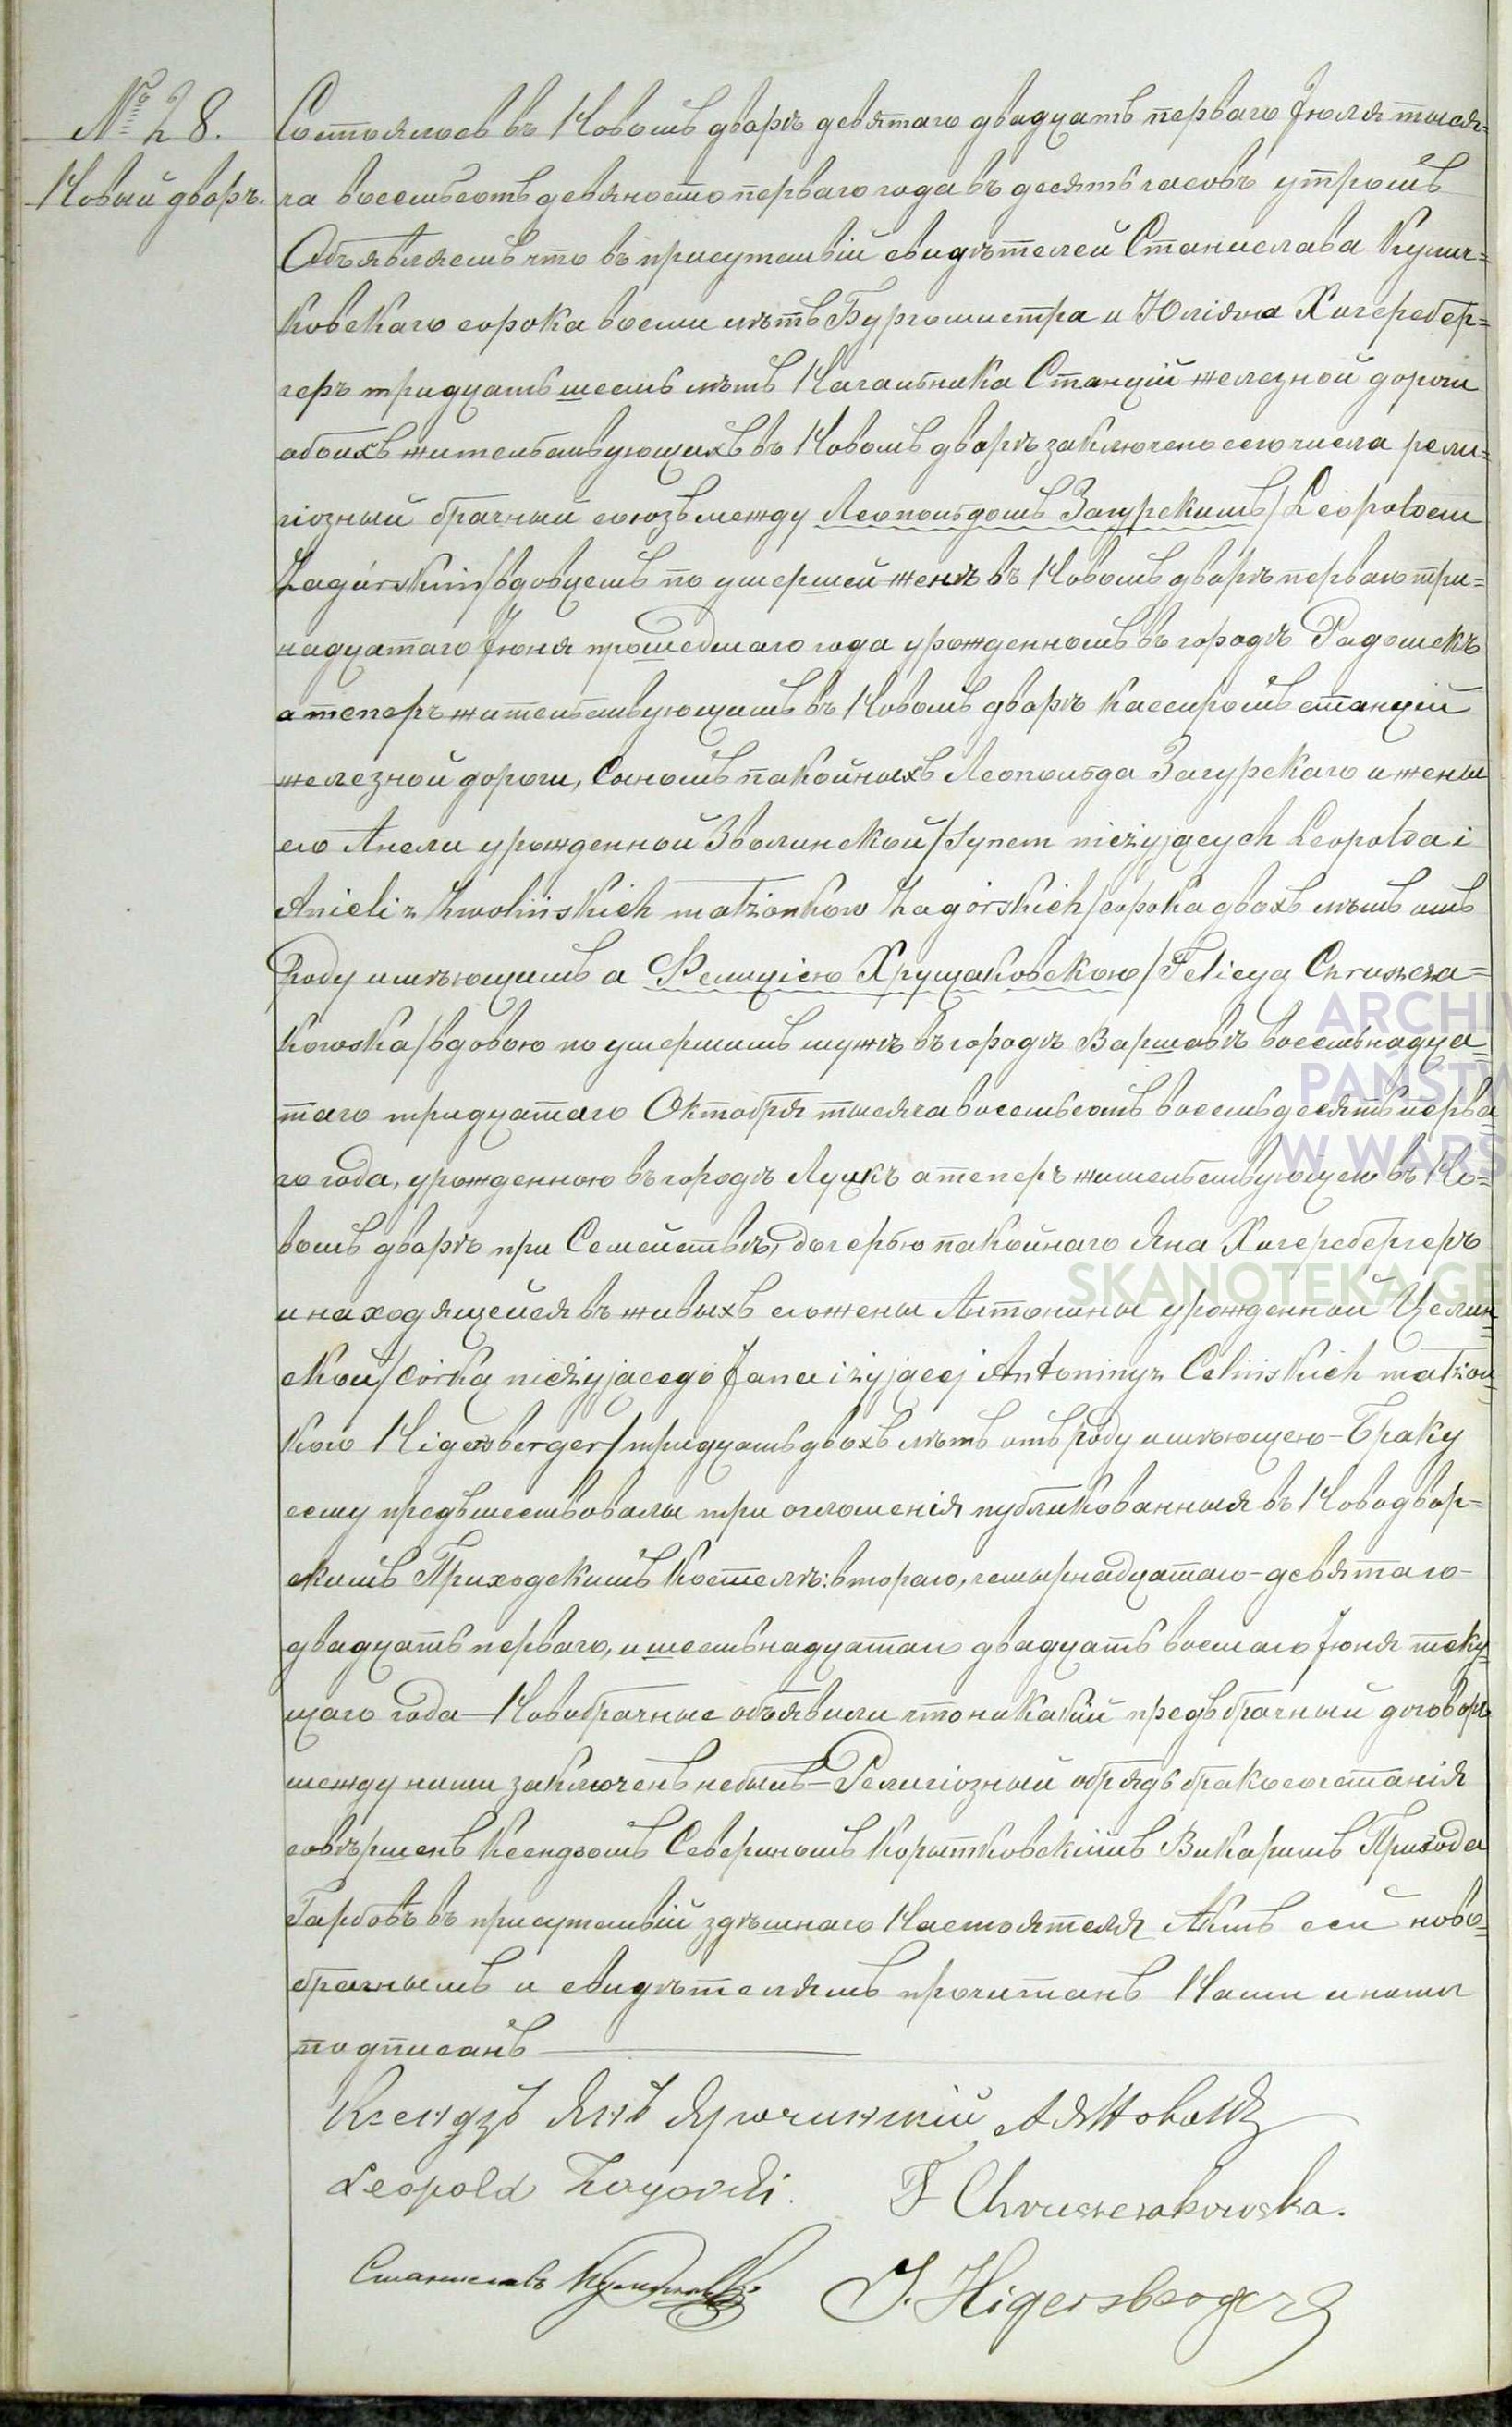 № 28.
Новый дворъ.
Состоялось въ Новомъ дворѣ девятаго двадцать перваго Іюля тыся=
ча восемьсотъ девяносто перваго года въ десять часовъ утромъ
Объявляемъ что въ присутствій свидѣтелей Станислава Кулич=
ковскаго сорока восми лѣтъ Бургомистра и Юліяна Хигеребер=
геръ тридцать шесть лѣтъ Начальника Станцій железной дороги
обоихъ жительствующихъ въ Новомъ дворѣ заключено сего числа рели=
гіозный брачный союзъ между Леопольдомъ Загурскимъ /Leopoldem
Zagórskim/ вдовцемъ по умершей женѣ въ Новомъ дворѣ перваго три=
надцатаго Іюня прошедшаго года урожденномъ въ городѣ Радомскъ
а теперъ жительствующимъ въ Новомъ дворѣ Кассиромъ станцій
железной дороги, Сыномъ покойныхъ Леопольда Загурскаго и жены
его Анели урожденной Зволинской /Synem nieżyjących Leopolda i
Anieli z Zwolińskich małżonków Zagórskich/ сорока двохъ лѣтъ отъ
роду имѣющимъ а Фелиціею Хрущаковскою /Felicyą Chruszcza=
kowską/ вдовою по умершимъ мужѣ въ городѣ Варшавѣ восемьнадца=
таго тридцатаго Октобря тысяча восемьсотъ восемьдесятъ перва=
го года, урожденною въ городѣ Луцкъ а теперъ жительствующею въ Но=
вомъ дворѣ при Семействѣ, дочерью покойнаго Яна Хигеребергеръ
и находящейся въ живыхъ его жены Антонины урожденной Целин=
ской /córką nieżyjącego Jana i żyjącej Antoniny z Celińskich małżon=
ków Higersberger/ тридцать двохъ лѣтъ отъ роду имѣющею – Браку
сему предъшествовали три оглошенія публикованныя въ Новодвор=
скимъ Приходскимъ Костелѣ: втораго, четырнадцатаго – девятаго –
двадцать перваго, и шестьнадцатаго двадцать восмаго Іюня теку=
щаго года – Новобрачные объявили что никакій предъбрачный договоръ
между ними заключенъ небылъ – Религіозный обрядъ бракосочетанія
совѣршенъ Ксендзомъ Севериномъ Корытковскіимъ Викаримъ Прихода
Гарбовъ въ присутствій здѣшнаго Настоятеля Актъ сей ново=
брачнымъ и свидѣтелямъ прочитанъ Нами и ними
подписанъ
Ксендзъ Янъ
Leopold Zagórski. F Chruszczakowska.
Станиславъ J. Higersberger
ARCHIW
PAŃSTW
W WARS
SKANOTEKA GE